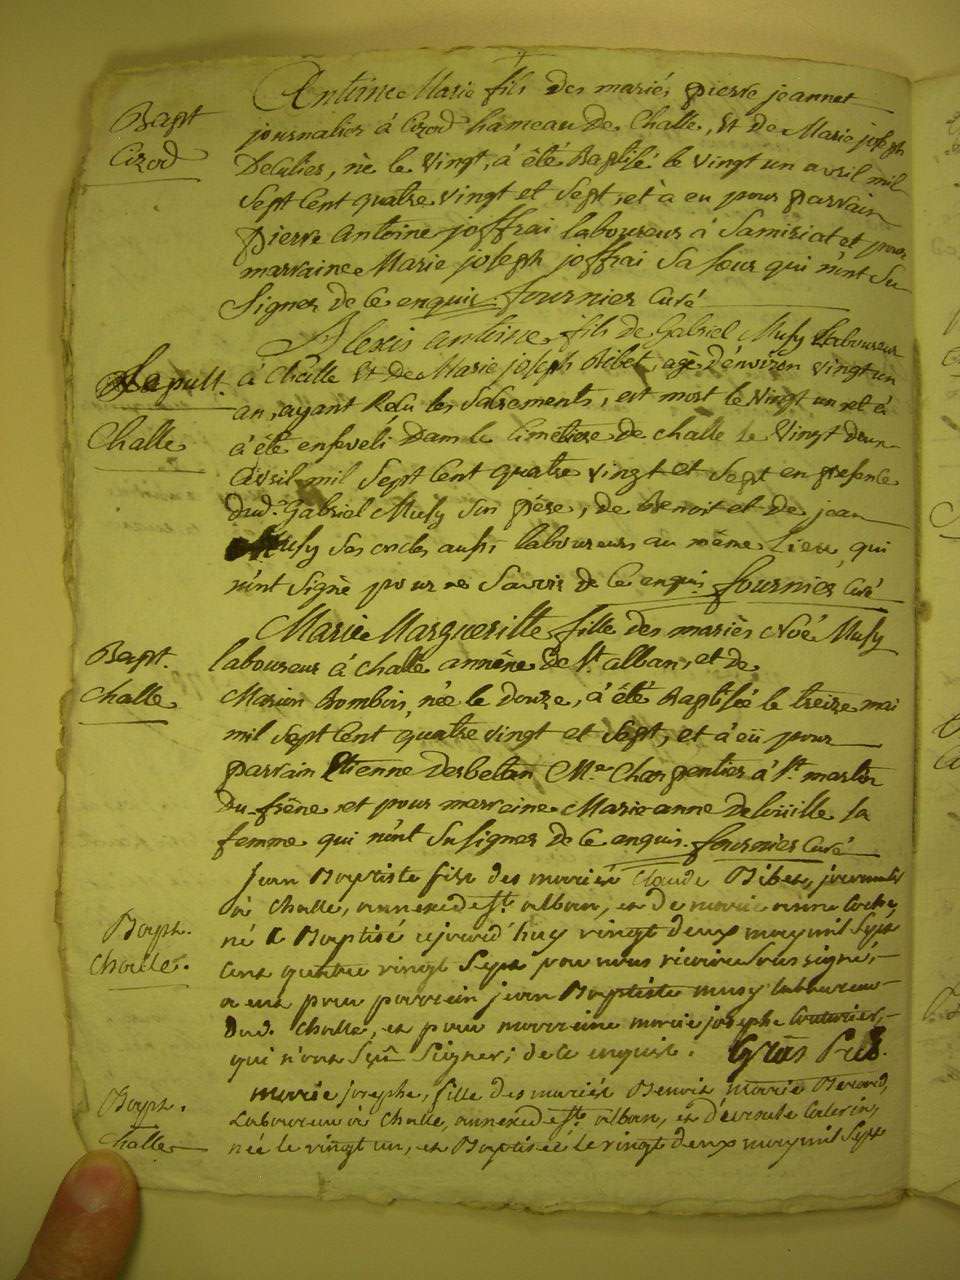 Bapt
Cizod
Antoine Marie fils des mariés pierre jeannet
journalier à Cizod hameau de Challe, et de Marie joseph
né le vingt, à été Baptisé le vingt un avril mil
Sept Cent quatre vingt et Sept, et à eu pour parrain
pierre Antoine joffrai laboureur à Samiriat et pour
marraine Marie joseph joffrai Sa soeur qui n'ont Su
Signer de ce enquis. fournier Curé
Sepult.
Challe
Alexis antoine fils de Gabriel Musy Laboureur
à Challe et de Marie joseph Ribet, agé d'environ vingt un
an, ayant Reçu les Sacrements, est mort le vingt un et à
à été enseveli dans le Cimétiere de challe le vingt deux
avril mil Sept Cent quatre vingt et Sept en presence
dud. Gabriel Musy Son pére, de Benoit et de jean
Musy Ses oncles aussi laboureurs au même Lieu, qui
n'ont Signé pour ne Savoir de ce enquis fournier Curé
Bapt.
Challe
Marie Margueritte fille des mariés Noé Musy
laboureur à challe annéxe de St alban, et de
Marion Bombois, née le douze, à été Baptisée le treize mai
mil Sept Cent quatre vingt et Sept, et à eü pour
parrain Etienne Me Charpentier à St martin
du frêne et pour marraine Marie anne sa
femme qui n'ont Su Signer de ce enquis. fournier Curé
Bapt.
Challe.
Jean Baptiste fils des mariés Claude Ribet, journalier
à Challe, annexe de St alban, et de marie anne
né & Baptisé ajourd'huy vingt deux may mil Sept
Cent quatre vingt Sept par nous vicaire Soussigné,
a eut pour parrain jean Baptiste musy laboureur
Dud. Challe, et pour marraine marie josephe Couturier,
qui n'ont Sçû Signer; de ce enquis.
Bapt.
Challe
marie josephe, fille des mariés Benoit marie
Laboureur à Challe, annexe de St alban, et
née le vingt un, et Baptisée le vingt deux may mil Sept